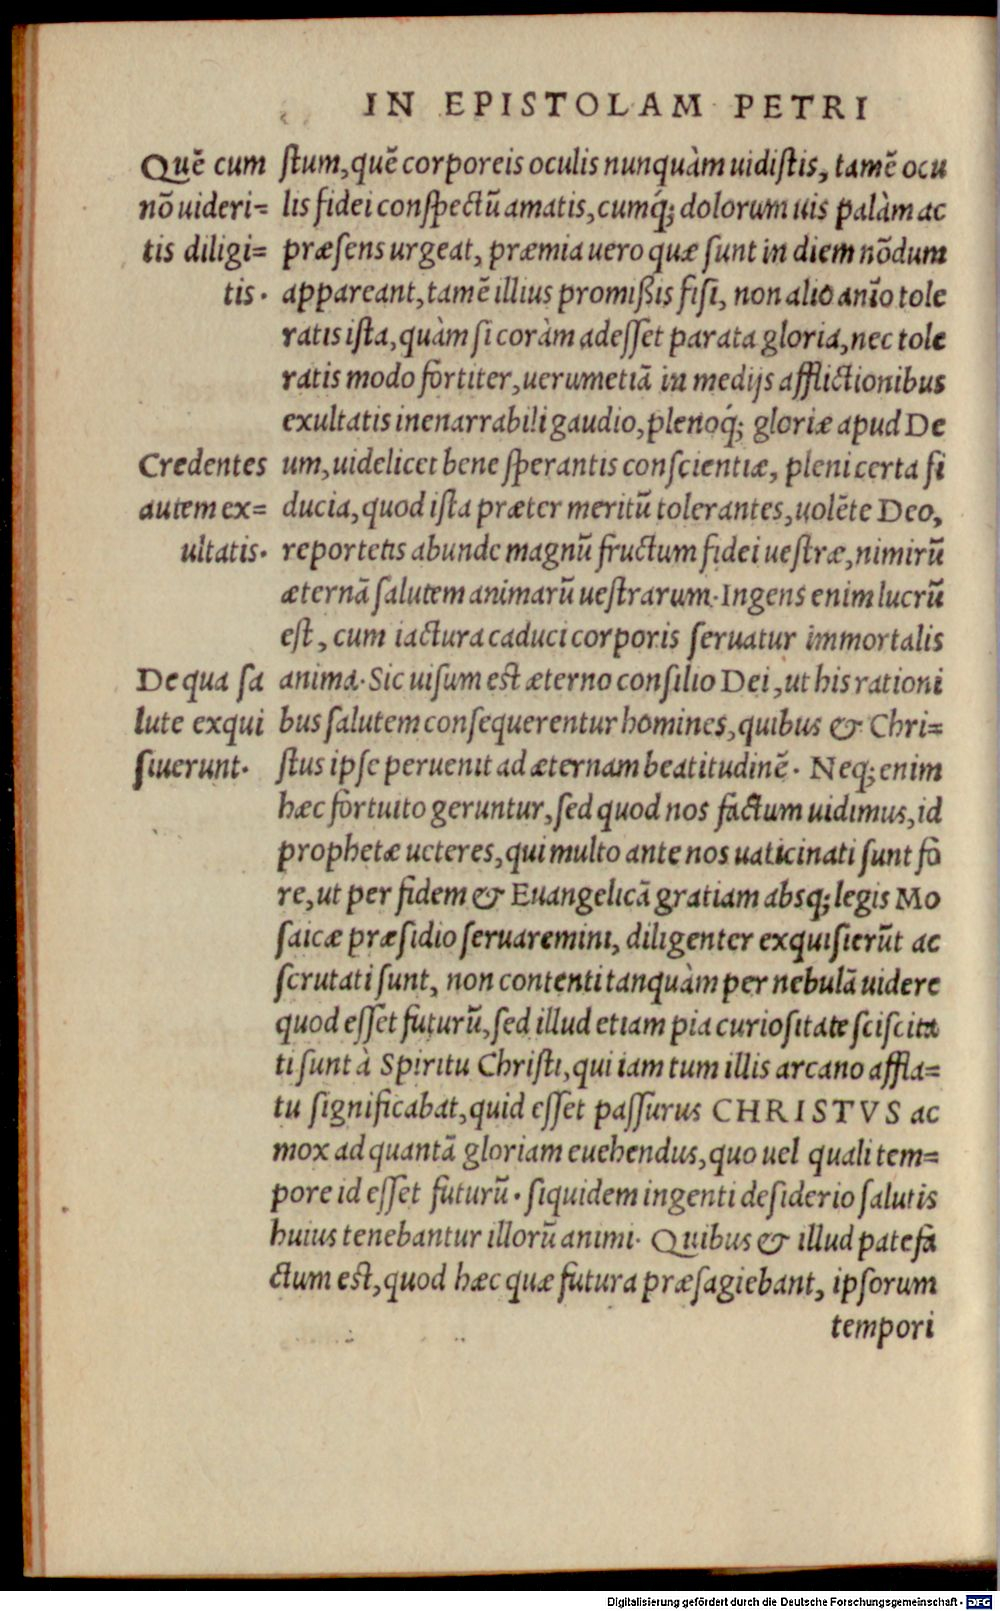 IN EPISTOLAM PETRI
Quē cum
nō uideri=
tis diligi=
tis.
ſtum, quē corporeis oculis nunquàm uidiſtis, tamē ocu
lis fidei conſpectū amatis, cumq́; dolorum uis palàm ac
præſens urgeat, præmia uero quæ ſunt in diem nōdum
appareant, tamē illius promißis fiſi, non alio anīo tole
ratis iſta, quàm ſi coràm adeſſet parata gloria, nec tole
ratis modo fortiter, uerumetiā in medijs afflictionibus
exultatis inenarrabili gaudio, plenoq́; gloriæ apud De
Credentes
autem ex=
ultatis.
um, uidelicet bene ſperantis conſcientiæ, pleni certa fi
ducia, quod iſta præter meritū tolerantes, uolēte Deo,
reportetis abunde magnū fructum fidei ueſtræ, nimirū
æternā ſalutem animarū ueſtrarum. Ingens enim lucrū
eſt, cum iactura caduci corporis ſeruatur immortalis
De qua ſa
lute exqui
ſiuerunt.
anima. Sic uiſum eſt æterno conſilio Dei, ut his rationi
bus ſalutem conſequerentur homines, quibus & Chri=
ſtus ipſe peruenit ad æternam beatitudinē. Neq; enim
hæc fortuito geruntur, ſed quod nos factum uidimus, id
prophetæ ueteres, qui multo ante nos uaticinati ſunt fo
re, ut per fidem & Euangelicā gratiam absq; legis Mo
ſaicæ præſidio ſeruaremini, diligenter exquiſierūt ac
ſcrutati ſunt, non contenti tanquàm per nebulā uidere
quod eſſet futurū, ſed illud etiam pia curioſitate ſciſcita
ti ſunt à Spiritu Chriſti, qui iam tum illis arcano affla=
tu ſignificabat, quid eſſet paſſurus CHRISTVS ac
mox ad quantā gloriam euehendus, quo uel quali tem=
pore id eſſet futurū. ſiquidem ingenti deſiderio ſalutis
huius tenebantur illorū animi. Quibus & illud patefa
ctum eſt, quod hæc quæ futura præſagiebant, ipſorum
tempori
Digitalisierung gefördert durch die Deutsche Forschungsgemeinschaft - DFG